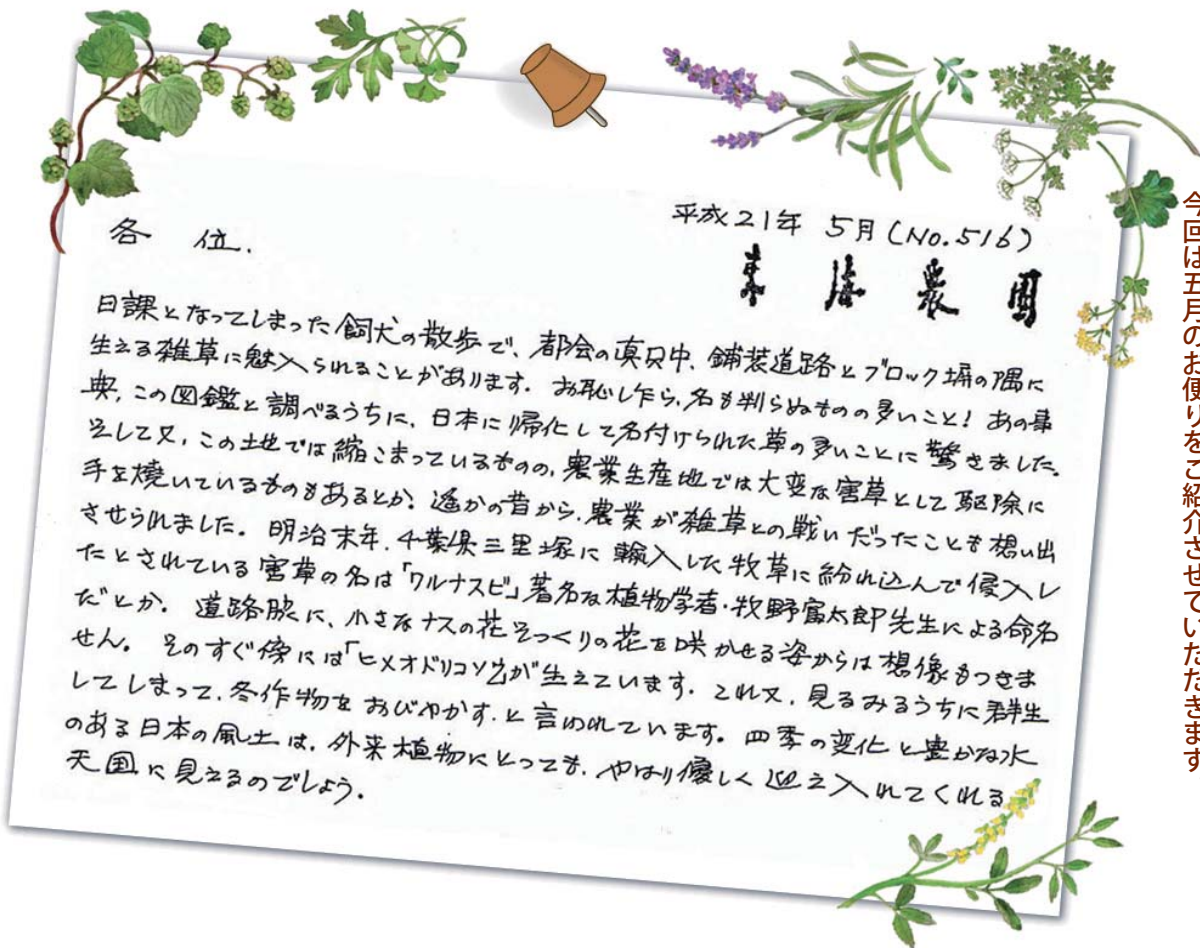 今回は五月のお便りをご紹介させていただきます
平成21年 5月(No.516)
各 位.
農園
日課となってしまった飼犬の散歩で、都会の真只中、舗装道路とブロック塀の隅に
生える雑草に魅入られることがあります。お恥し乍ら、名も判らぬものの多いこと!あの事
典、この図鑑と調べるうちに、日本に帰化して名付けられた草の多いことに驚きました。
そして又、この土地では縮こまっているものの、農業生産地では大変な害草として駆除に
手を焼いているものもあるとか。遙かの昔から、農業が雑草との戦いだったことも想い出
させられました。明治末年、千葉県三里塚に輸入した牧草に紛れ込んで侵入し
たとされている害草の名は「ワルナスビ」著名な植物学者・牧野富太郎先生による命名
だとか。道路脇に、小さなナスの花そっくりの花を咲かせる姿からは想像もつきま
せん。そのすぐ傍には「ヒメオドリコソウ」が生えています。これ又、見るみるうちに群生
してしまって、冬作物をおびやかす、と言われています。四季の変化と豊かな水
のある日本の風土は、外来植物にとっても、やはり優しく迎え入れてくれる
天国に見えるのでしょう。